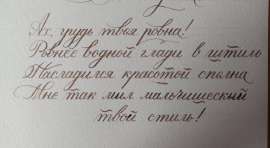 Ах, грудь твоя ровна!
Ровнее водной глади в штиль
Насладился красотой сполна
Мне так мил мальчишеский
твой стиль!